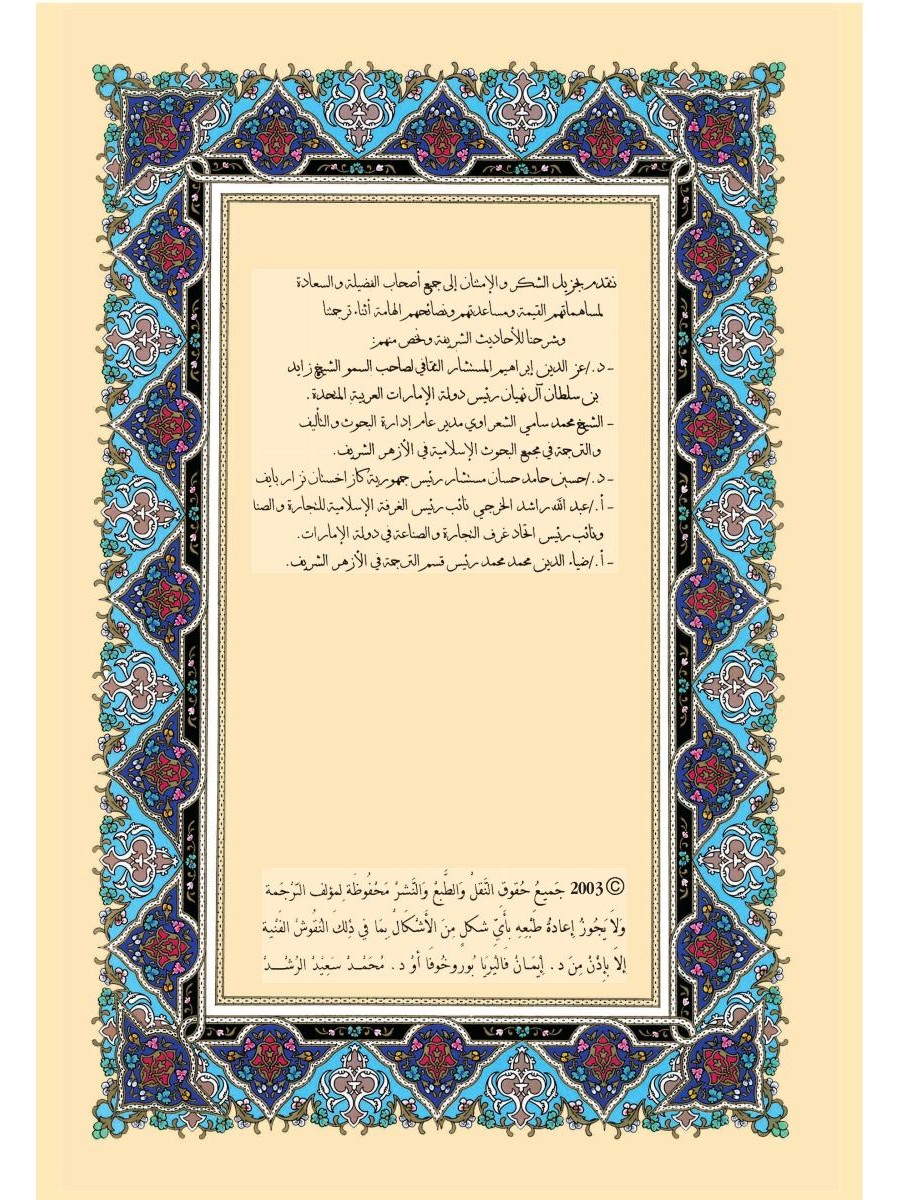 نتقدم بجزيل الشكر والإمتنان إلى جميع أصحاب الفضيلة والسعادة
لمساهماتهم القيمة ومساعدتهم ونصائحهم الهامة أثناء ترجمتنا
وشرحنا للأحاديث الشريفة ونخص منهم:
- د./عز الدين إبراهيم المستشار الثقافي لصاحب السمو الشيخ زايد
بن سلطان آل نهيان رئيس دولة الإمارات العربية المتحدة.
- الشيخ محمد سامي الشعراوي مدير عام إدارة البحوث والتأليف
والترجمة في مجمع البحوث الإسلامية في الأزهر الشريف.
- د./حسين حامد حسان مستشار رئيس جمهورية كازاخستان نزاربايف
- أ./عبد الله راشد الخرجي نائب رئيس الغرفة الإسلامية للتجارة والصنا
ونائب رئيس اتحاد غرف التجارة والصناعة في دولة الإمارات.
- أ./ضياء الدين محمد محمد رئيس قسم الترجمة في الأزهر الشريف.
© 2003 جَمِيعُ حُقوق النَّقلْ وَالطَّبعْ وَالنَّشرْ مَحْفُوظَة لِمؤلف التَرْجَمة
وَلاَ يَجُوزُ إعادةُ طَبْعِهِ بِأَيِّ شكلٍ مِنَ الأَشْكَالْ بِمَا في ذلِكَ النُقُوشْ الفَنْية
إلاَ بِإِذْنْ مِنَ د. إيْمَانْ فَاليْرِيَا بُورُوخُوفَا أَوْ د. مُحَمَّد سَعِيْدْ الرُشْد